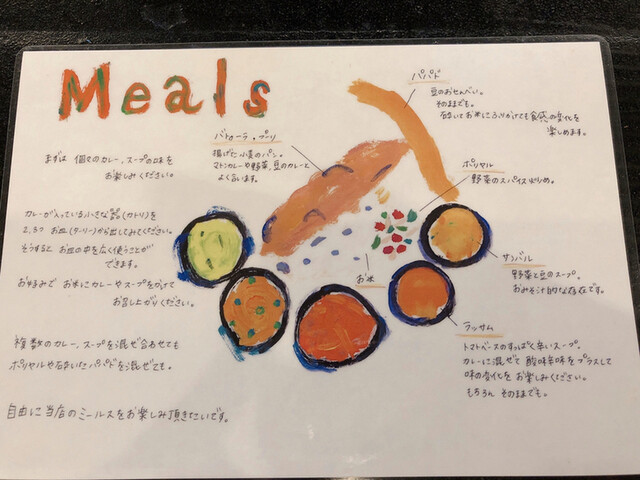 Meals
まずは 個々のカレー、スープの味を
お楽しみください。
カレーが入っている小さな器(カトリ)を
お皿(ターリー)から出してみてください。
そうすると お皿の中を広く使うことが
できます。
お好みで お米にカレーやスープをかけて
お召し上がりください。
複数のカレー、スープを混ぜ合わせても
ポリヤルや砕いたパパドを混ぜても。
自由に当店のミールスをお楽しみ頂きたいです。
パパド
豆のおせんべい。
そのままでも。
砕いてお米にふりかけても食感の変化を
楽しめます。
バトゥーラ・プーリ
揚げた小麦のパン。
マトンカレーや野菜、豆のカレーと
よく合います。
ポリヤル
野菜のスパイス炒め。
お米
サンバル
野菜と豆のスープ。
おみそ汁的な存在です。
ラッサム
トマトベースのすっぱく辛いスープ。
カレーに混ぜて 酸味辛味をプラスして
味の変化を お楽しみください。
もちろん そのままでも。